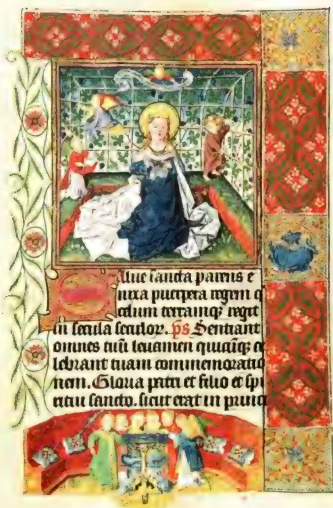 alue sancta parens e
nixa puerpera regem q
celum terramqꝫ regit
in secula seculoꝝ. ps Sentiant
omnes tuū leuamen quicūqꝫ ce
lebrant tuam commemoratio
nem. Gloria patri et filio et spi
ritui sancto. sicut erat in princi